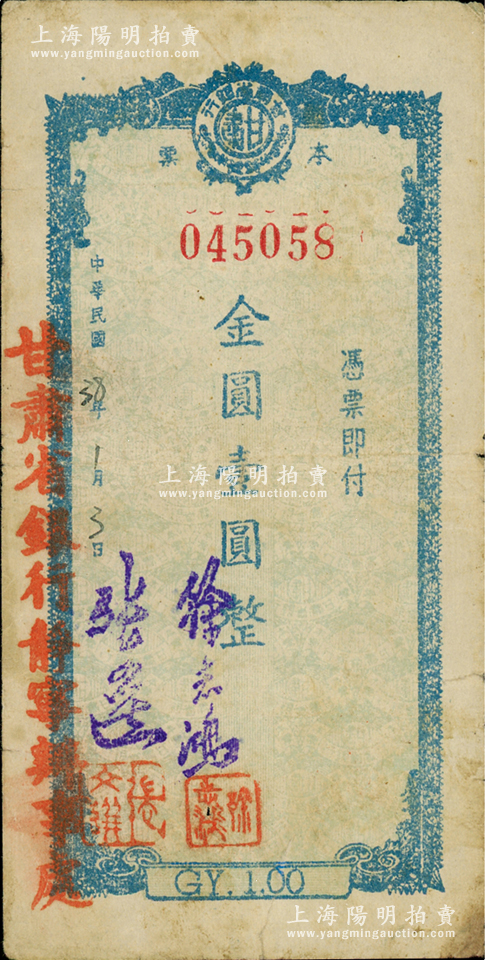 上海陽明拍賣
www.yangmingauction.com
甘肅省銀行
甘肅
本票
045058
憑票即付
金圓壹圓整
中華民國38年1月3日
甘肅省銀行靜寧辦事處
徐志鴻
GY. 1.00
上海陽明拍賣
www.yangmingauction.com
上海陽明拍賣
www.yangmingauction.com